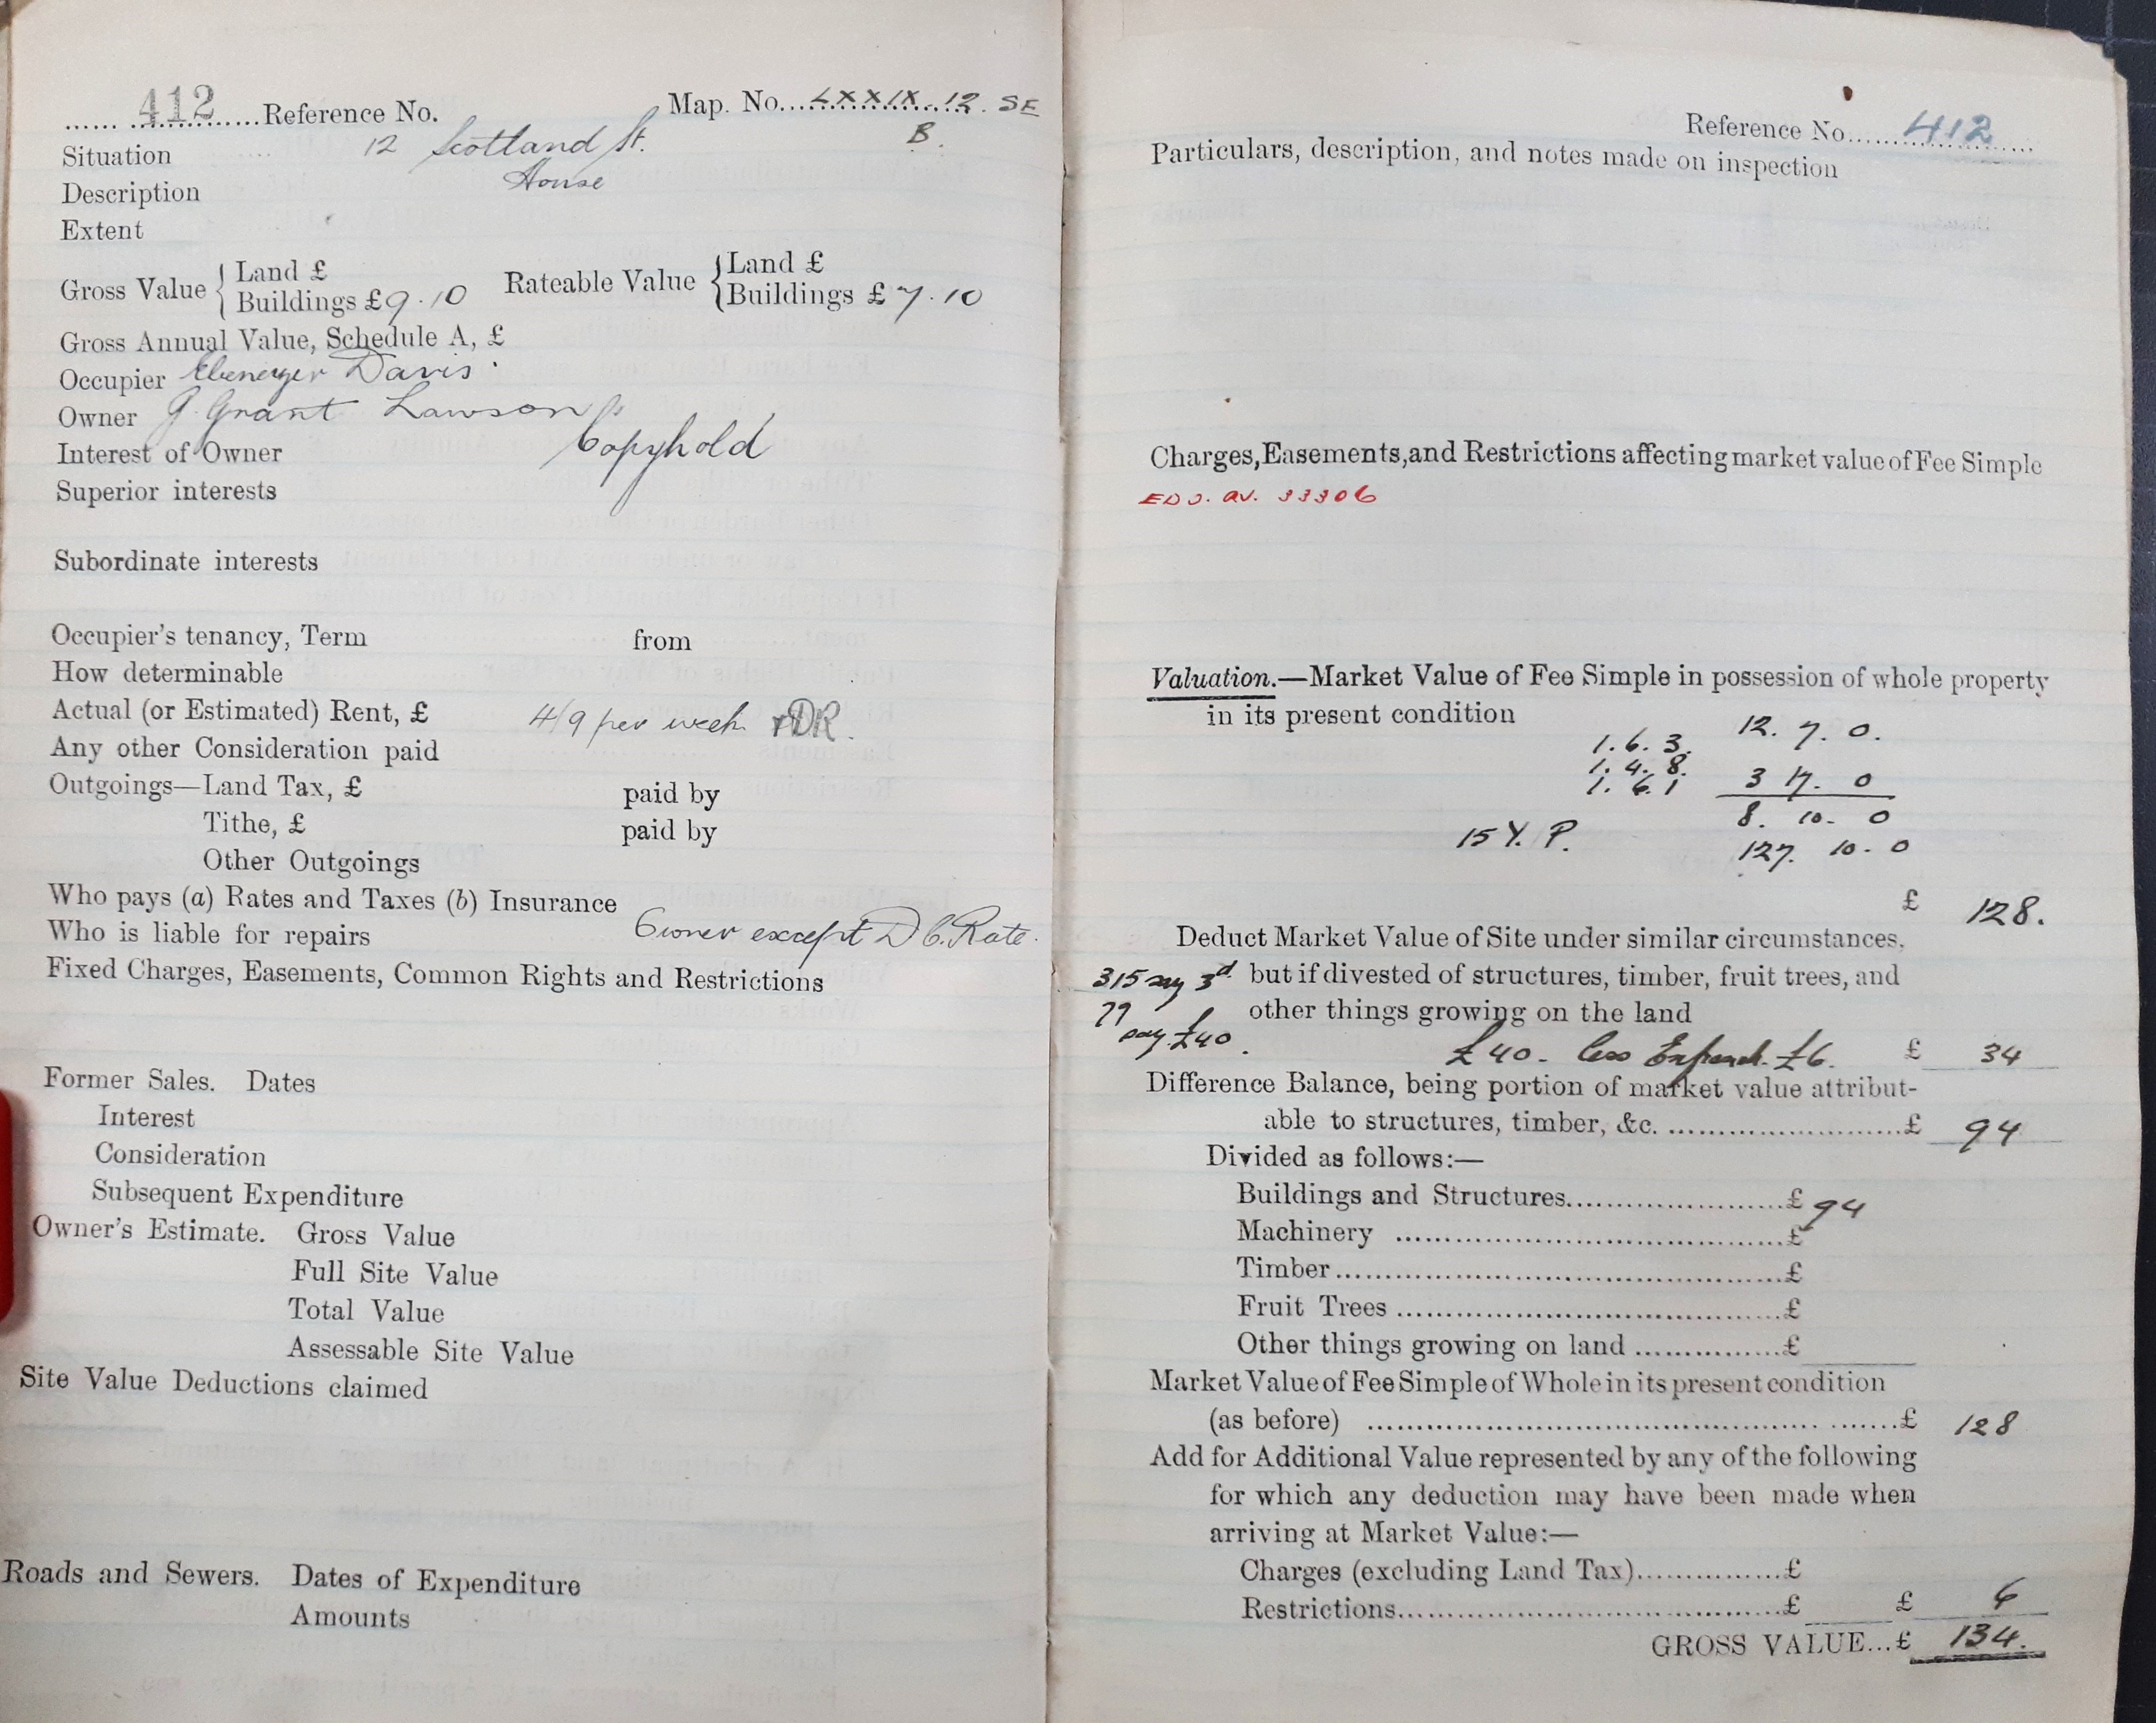 412 Reference No. Map. No. LXXIX. 12. SE
B.
Situation 12 Scotland St.
Description House
Extent
Gross Value { Land £ Rateable Value { Land £
Buildings £ 9.10 Buildings £ 7.10
Gross Annual Value, Schedule A, £
Occupier Ebenezer Davis
Owner G. Grant Lawson
Interest of Owner Copyhold
Superior interests
Subordinate interests
Occupier's tenancy, Term from
How determinable
Actual (or Estimated) Rent, £ 4/9 per week + DR.
Any other Consideration paid
Outgoings—Land Tax, £ paid by
Tithe, £ paid by
Other Outgoings
Who pays (a) Rates and Taxes (b) Insurance
Who is liable for repairs Owner except D C. Rate.
Fixed Charges, Easements, Common Rights and Restrictions
Former Sales. Dates
Interest
Consideration
Subsequent Expenditure
Owner's Estimate. Gross Value
Full Site Value
Total Value
Assessable Site Value
Site Value Deductions claimed
Roads and Sewers. Dates of Expenditure
Amounts
Reference No. 412
Particulars, description, and notes made on inspection
Charges, Easements, and Restrictions affecting market value of Fee Simple
33306
Valuation.—Market Value of Fee Simple in possession of whole property
in its present condition
12. 7. 0.
1. 6. 3.
1. 4. 8. 3 17. 0
1. 6. 1
8. 10. 0
15 Y. P. 127. 10. 0
£ 128.
Deduct Market Value of Site under similar circumstances,
315 say 3d but if divested of structures, timber, fruit trees, and
79 other things growing on the land
say £40. £40. less Expend. £6. £ 34
Difference Balance, being portion of market value attribut-
able to structures, timber, &c. £ 94
Divided as follows:—
Buildings and Structures £ 94
Machinery £
Timber £
Fruit Trees £
Other things growing on land £
Market Value of Fee Simple of Whole in its present condition
(as before) £ 128
Add for Additional Value represented by any of the following
for which any deduction may have been made when
arriving at Market Value:—
Charges (excluding Land Tax) £
Restrictions £ £ 6
GROSS VALUE...£ 134.